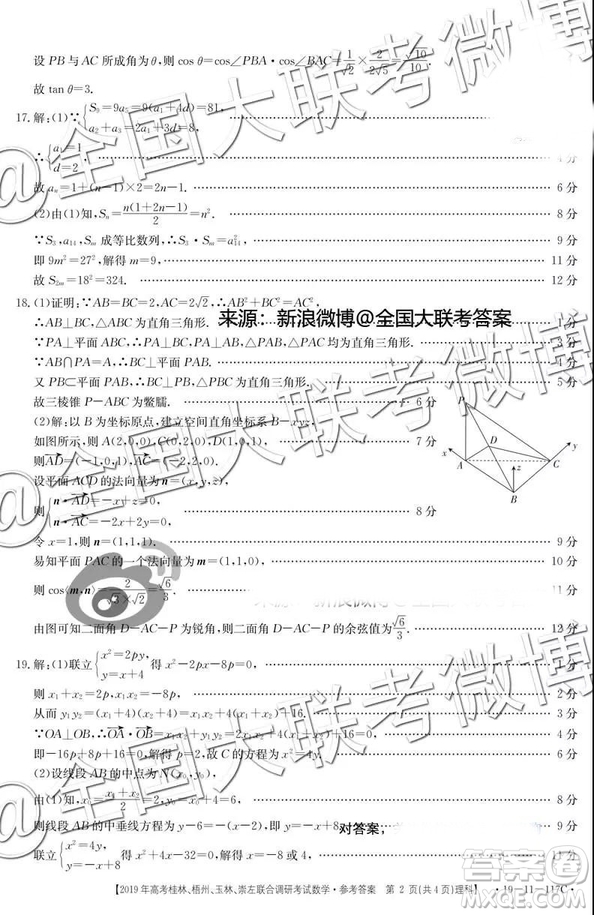 设 PB 与 AC 所成角为 θ,则 cos θ=cos∠PBA·cos∠BAC=1/√2×2/(2√5)=√10/10.
故 tan θ=3.
17.解:(1)∵{S₉=9a₅=9(a₁+4d)=81, a₂+a₃=2a₁+3d=8,
∴{a₁=1 d=2, 4 分
故 aₙ=1+(n-1)×2=2n-1. 6 分
(2)由(1)知,Sₙ=n(1+2n-1)/2=n². 8 分
∵S₃,a₁₄,Sₘ 成等比数列,∴S₃·Sₘ=a₁₄², 9 分
即 9m²=27²,解得 m=9, 11 分
故 S₂ₘ=18²=324. 12 分
18.(1)证明:∵AB=BC=2,AC=2√2,∴AB²+BC²=AC²,
∴AB⊥BC,△ABC 为直角三角形. 1 分
来源:新浪微博@全国大联考答案
∵PA⊥平面 ABC,∴PA⊥BC,PA⊥AB,△PAB,△PAC 均为直角三角形. 3 分
∵AB∩PA=A,∴BC⊥平面 PAB.
又 PB⊂平面 PAB,∴BC⊥PB,△PBC 为直角三角形. 5 分
故三棱锥 P-ABC 为鳖臑. 6 分
(2)解:以 B 为坐标原点,建立空间直角坐标系 B-xyz,
如图所示,则 A(2,0,0),C(0,2,0),D(1,0,1), 7 分
则AD=(-1,0,1),AC=(-2,2,0).
设平面 ACD 的法向量为 n=(x,y,z),
则{n·AD=-x+z=0, n·AC=-2x+2y=0, 8 分
令 x=1,则 n=(1,1,1). 9 分
易知平面 PAC 的一个法向量为 m=(1,1,0), 10 分
则 cos⟨m,n⟩=2/(√3×√2)=√6/3. 11 分
由图可知二面角 D-AC-P 为锐角,则二面角 D-AC-P 的余弦值为√6/3. 12 分
P D A B C x y z
19.解:(1)联立{x²=2py, y=x+4 得 x²-2px-8p=0, 1 分
则 x₁+x₂=2p,x₁x₂=-8p, 2 分
从而 y₁y₂=(x₁+4)(x₂+4)=x₁x₂+4(x₁+x₂)+16. 3 分
∵OA⊥OB,∴OA·OB=x₁x₂+y₁y₂=2x₁x₂+4(x₁+x₂)+16=0, 4 分
即-16p+8p+16=0,解得 p=2,故 C 的方程为 x²=4y. 6 分
(2)设线段 AB 的中点为 N(x₀,y₀),
由(1)知,x₀=(x₁+x₂)/2=2,y₀=x₀+4=6, 8 分
则线段 AB 的中垂线方程为 y-6=-(x-2),即 y=-x+8. 9 分
对答案,
联立{x²=4y, y=-x+8 得 11 分
【2019 年高考桂林、梧州、玉林、崇左联合调研考试数学·参考答案 第 2 页(共 4 页)理科】 ·19-11-117C·
@全国大联考微博